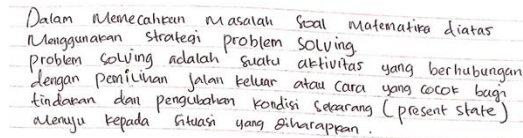 Dalam Memecahkan Masalah Soal Matematika diatas
Menggunakan strategi problem solving.
problem solving adalah suatu aktivitas yang berhubungan
dengan pemilihan jalan keluar atau cara yang cocok bagi
tindakan dan pengubahan kondisi sekarang (present state)
menuju kepada situasi yang diharapkan.